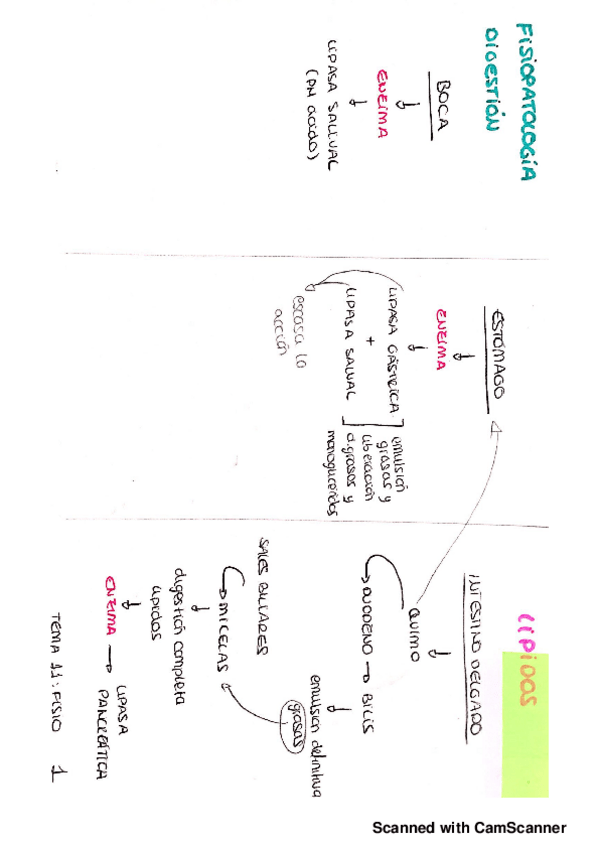 FISIOPATOLOGÍA
DIGESTIÓN
LÍPIDOS
BOCA
↓
ENZIMA
↓
LIPASA SALIVAL
(PH ácido)
ESTÓMAGO
↓
ENZIMA
↓
LIPASA GÁSTRICA
+
LIPASA SALIVAL
emulsión
grasas y
liberación
a.grasos y
monoglicéridos
escasa la
acción
INTESTINO DELGADO
↓
QUIMO
DUODENO → BILIS
↓
emulsión definitiva
grasas
SALES BILIARES
MICELAS
↓
digestión completa
lípidos
↓
ENZIMA → LIPASA
PANCREÁTICA
TEMA 11: FISIO 1
Scanned with CamScanner